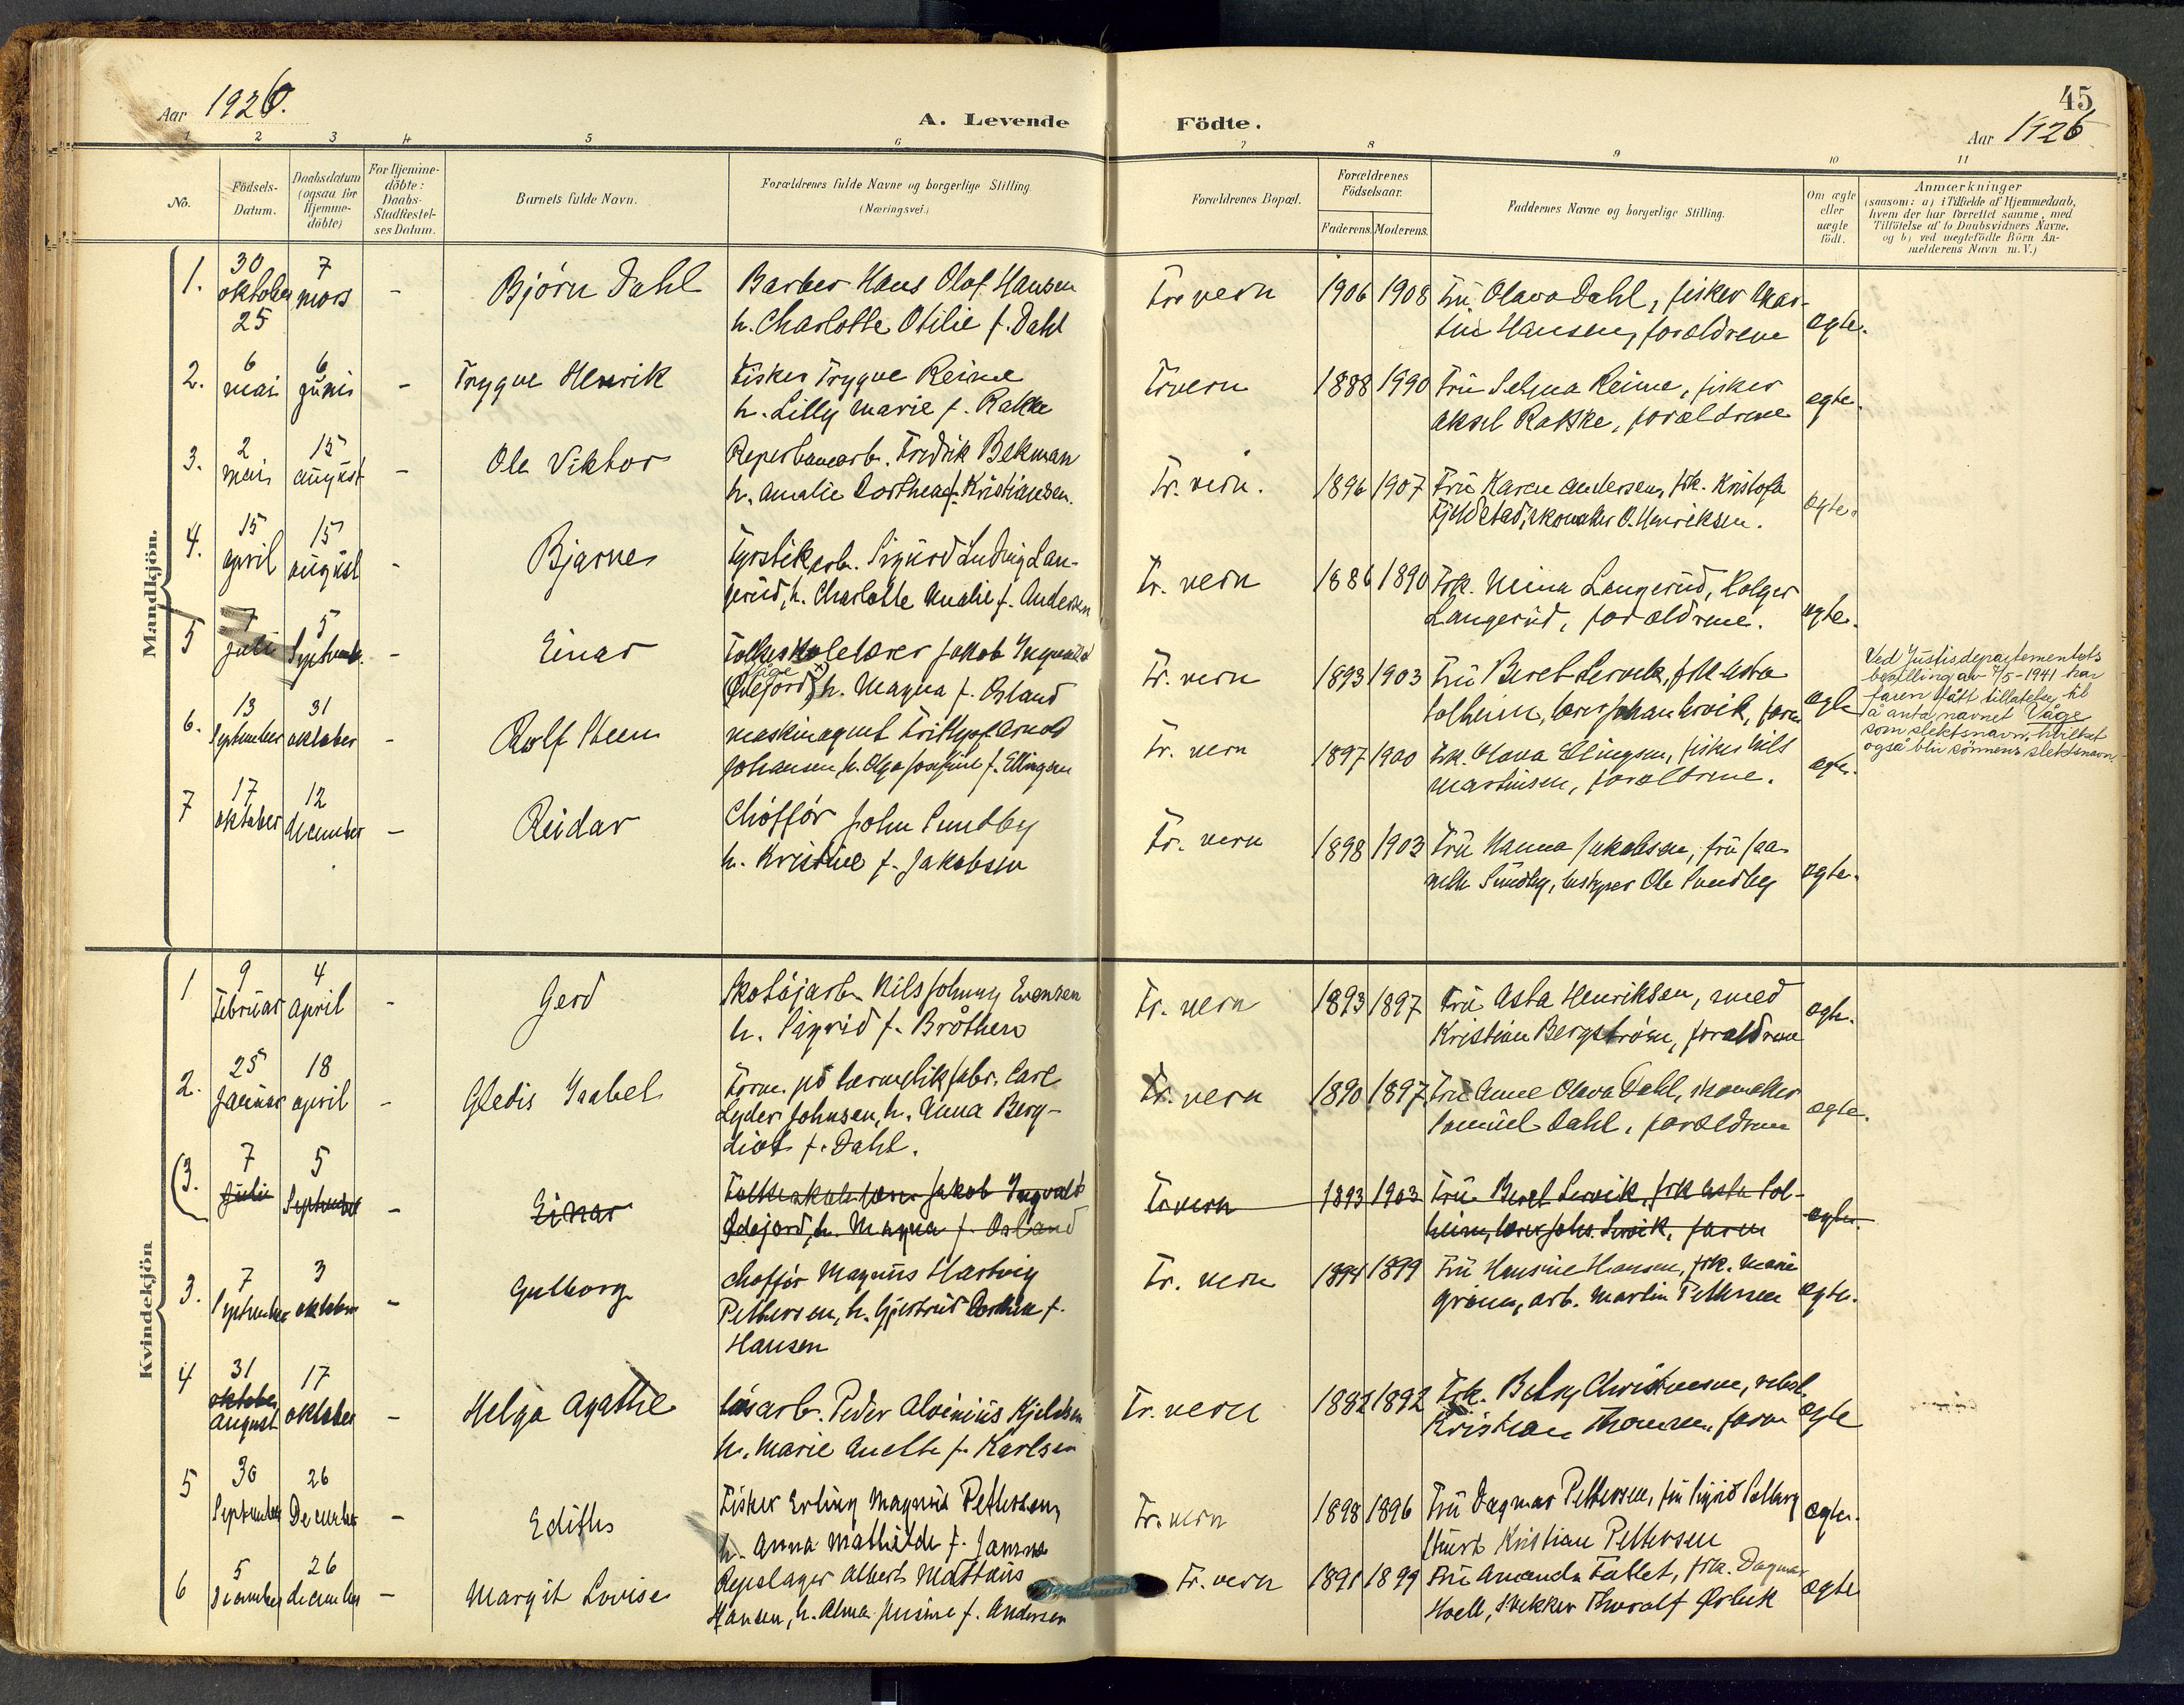 45
Aar 1926.
A. Levende Födte.
Aar 1926
1 2 3 4 5 6 7 8 9 10 11
No.
Födsels-
Datum.
Daabsdatum
(ogsaa for
Hjemme-
döbte)
For Hjemme-
döbte:
Daabs-
Stadfæstel-
ses Datum.
Barnets fulde Navn.
Forældrenes fulde Navne og borgerlige Stilling.
(Næringsvei.)
Forældrenes Bopæl.
Forældrenes
Födselsaar.
Faderens. Moderens.
Faddernes Navne og borgerlige Stilling.
Om ægte
eller
uægte
födt.
Anmærkninger
(saasom: a) i Tilfælde af Hjemmedaab,
hvem der har forrettet samme, med
Tilföielse af to Daabsvidners Navne,
og b) ved uægtefödte Börn An-
melderens Navn m. V.)
Mandkjön.
1. 30 oktober 25
7 mars
-
Bjørn Dahl
Barber Hans Olaf Hansen
h. Charlotte Otilie f. Dahl
Tr vern
1906 1908
Fru Olava Dahl, fisker Mar-
tin Hansen, foreldrene
egte.
2. 6 mai
6 juni
-
Trygve Henrik
Fisker Trygve Reime
h. Lilly Marie f. Rakke
Tr vern
1888 1990
Fru Selma Reime, fisker
Aksel Rakke, foreldrene
egte.
3. 2 mai
15 august
-
Ole Viktor
Reperbanearb. Fredrik Bekman
h. Amalie Dorthea f. Kristiansen.
Tr. vern.
1896 1907
Fru Karen Andersen, frk. Kristofa
Fjeldstad, skomaker O. Henriksen.
egte.
4. 15 april
15 august
-
Bjarne
Fyrstikarb. Sigurd Ludvig Lan-
gerud, h. Charlotte Amalie f. Andersen
Tr. vern
1886 1890
Frk. Mina Langerud, Holger
Langerud, foreldrene.
egte.
5 7 juli
5 Septemb.
-
Einar
Folkeskolelærer Jakob Ingvald
Våge x)
(Ødejord), h. Magna f. Osland
Tr. vern
1893 1903
Fru Beret Lervik, frk Asta
Solheim, lærer Johan Lervik, faren
egte
Ved Justisdepartementets
bevilling av 7/5-1941 har
faren fått tillatelse til
å anta navnet Våge
som slektsnavn, hvilket
også blir sönnens slektsnavn.
6. 13 September
31 oktober
-
Rolf Steen
Maskinagent Frithjof Arnold
Johansen, h. Olga Josefine f. Ellingsen
Tr. vern
1897 1900
Frk. Olava Ellingsen, fisker Nils
Martinsen, foreldrene.
egte.
7 17 oktober
12 december
-
Reidar
Chofför John Sundby
h. Kristine f. Jakobsen
Tr. vern
1898 1903
Fru Hanna Jakobsen, fru Jaa-
nette Sundby, Ole Sundby
egte.
Kvindekjön
1 9 Februar
4 April
-
Gerd
Skotøjarb. Nils Johnny Evensen
h. Sigrid f. Bråthen
Tr. vern
1893 1897
Fru Asta Henriksen, smed
Kristian Bergström, foreldrene
egte.
2. 25 Januar
18 april
-
Gledis Isabel
Form. på Carl
Lyder Johnsen, h. Anna Berg-
liot f. Dahl.
Tr. vern
1890 1897
Fru Anne Olava Dahl, skomaker
Samuel Dahl, foreldrene
egte.
(3. 7 Juli
5 September
-
Einar
Folkeskolelærer Jakob Ingvald
Ødejord, h. Magna f. Osland
Tr vern
1893 1903
Fru Beret Lervik, frk Asta Sol-
heim, lærer Johs. Lervik, faren
egte.
3. 7 September
3 oktober
-
Gulborg
Chofför Magnus Hartvig
Pettersen, h. Gjertrud Dorthea f.
Hansen
Tr. vern
1894 1899
Fru Hansine Hansen, frk. Marie
Grönn, arb. Martin Pettersen
egte.
4 31 oktober august
17 oktober
-
Helga Agathe
Løsarb. Peder Alvinius Kjeldsen
h. Marie Anette f. Karlsen
Tr. vern
1882 1892
Frk. Betsy Christensen,
Kristian Thomsen, faren
egte
5 30 September
26 December
-
Edith
Fisker Erling Magnus Pettersen,
h. Anna Mathilde f.
Tr. vern
1898 1896
Fru Dagmar Pettersen, fru Sigrid Solberg
Kristian Pettersen
egte.
6 5 December
26 december
-
Margit Lovise
Repslager Albert Mathæus
Hansen, h. Alma Jusine f. Andersen
Tr. vern
1891 1899
Fru Amanda Fallet, frk. Dagmar
Hoell, snekker Thoralf Ørbek
egte